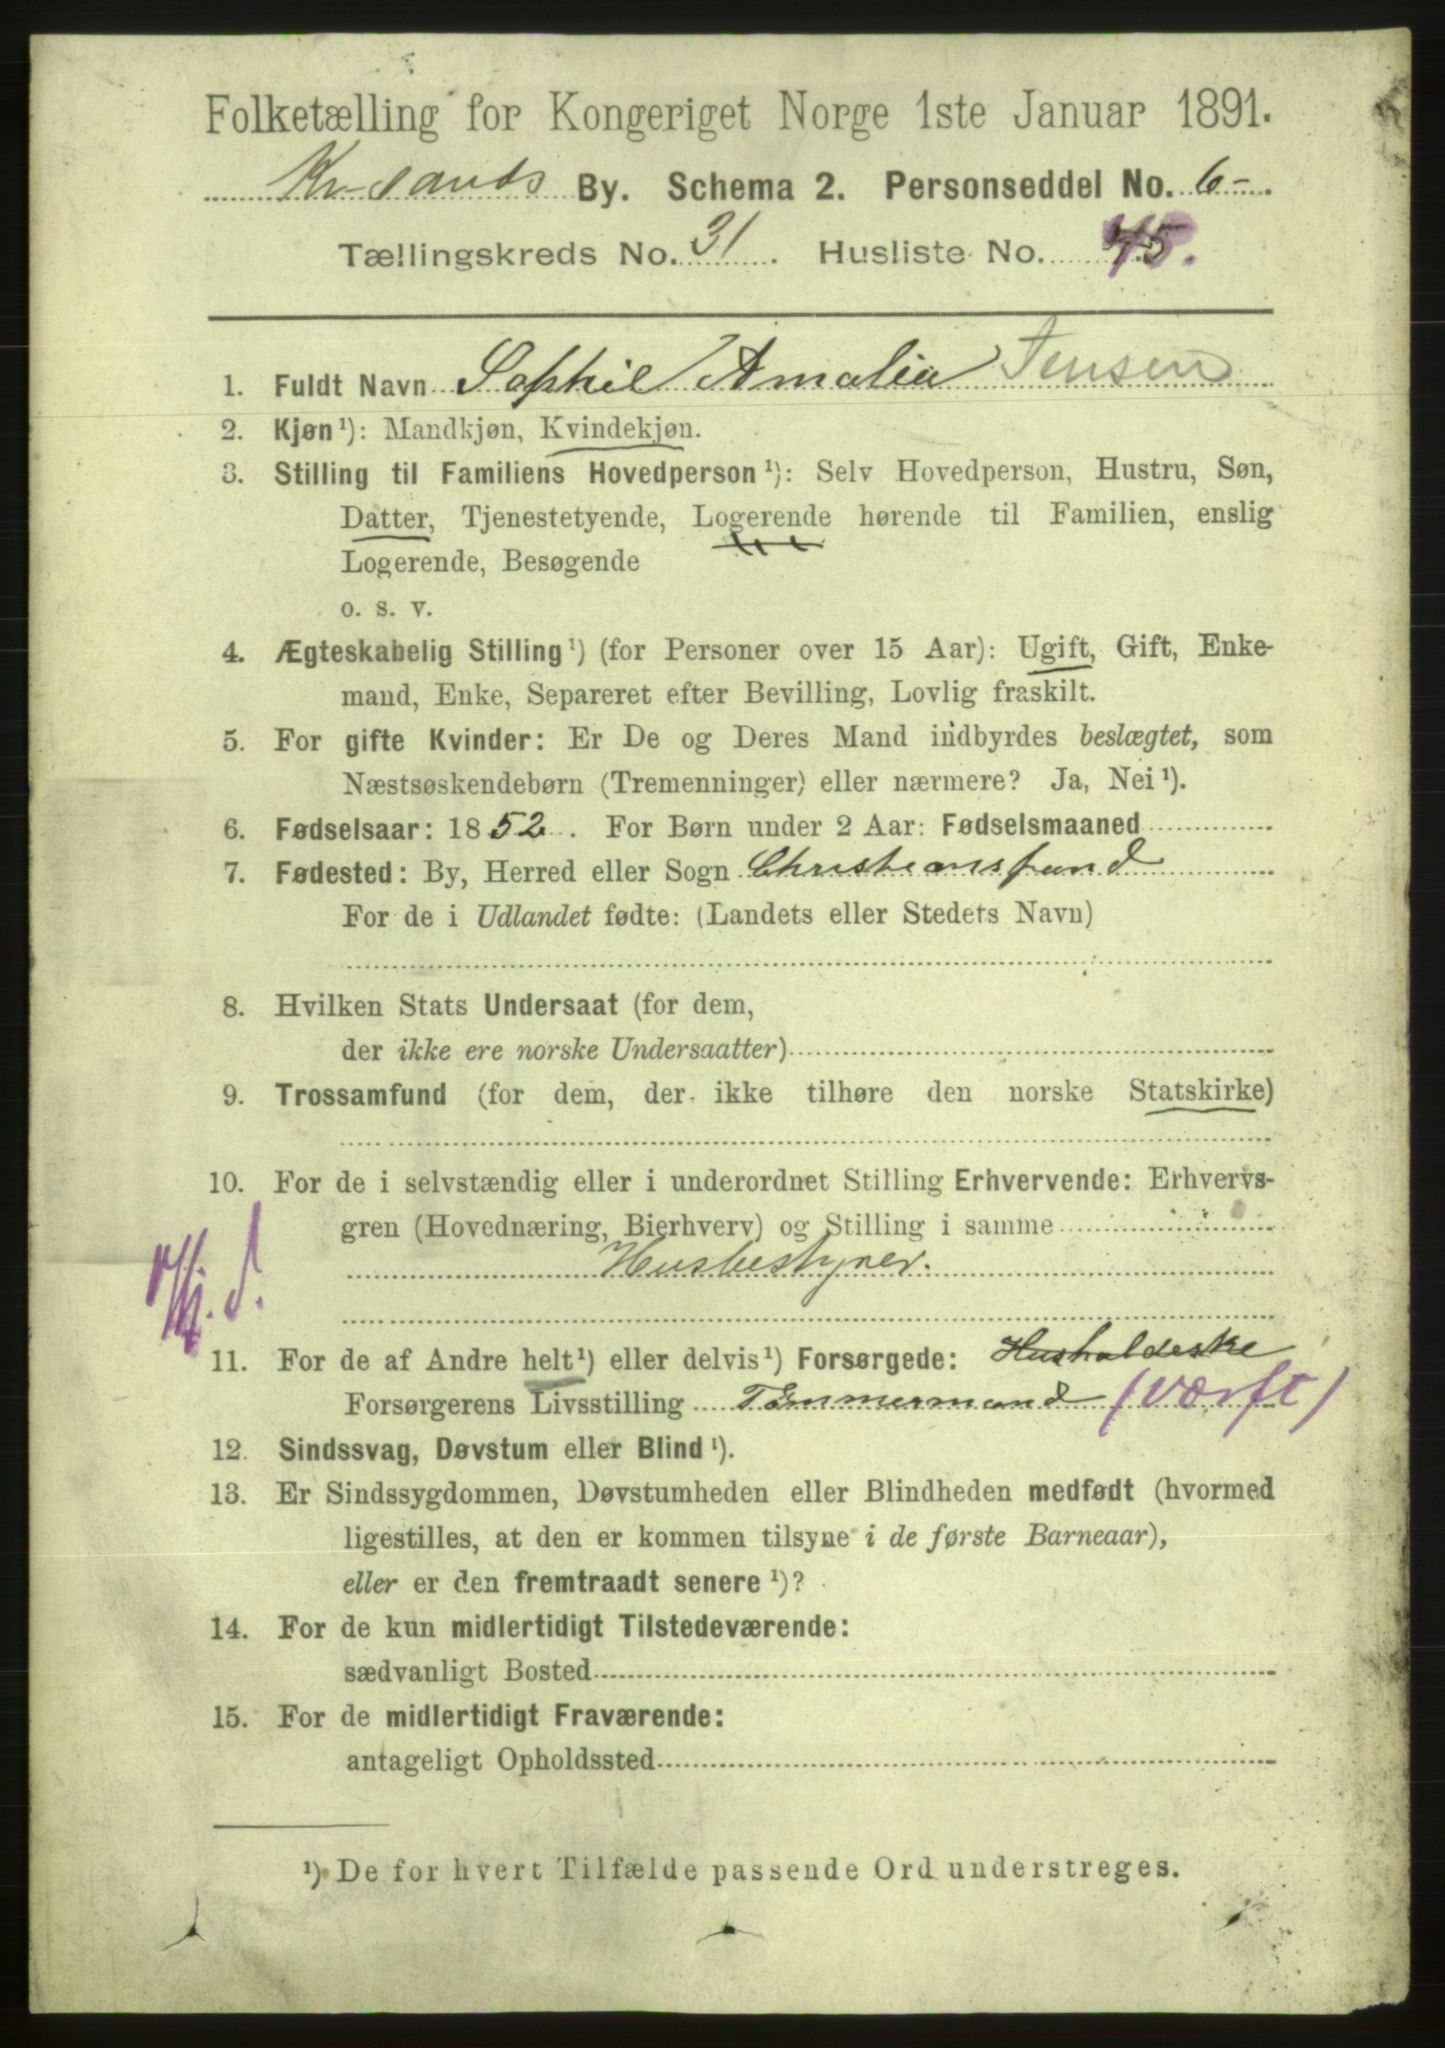 Folketælling for Kongeriget Norge 1ste Januar 1891.
Kr-sands By. Schema 2. Personseddel No. 6-.
Tællingskreds No. 31. Husliste No. 45.
1. Fuldt Navn Sophie Amalia Jensen
2. Kjøn¹): Mandkjøn, Kvindekjøn.
3. Stilling til Familiens Hovedperson¹): Selv Hovedperson, Hustru, Søn,
Datter, Tjenestetyende, Logerende hørende til Familien, enslig
Logerende, Besøgende
o. s. v.
4. Ægteskabelig Stilling¹) (for Personer over 15 Aar): Ugift, Gift, Enke-
mand, Enke, Separeret efter Bevilling, Lovlig fraskilt.
5. For gifte Kvinder: Er De og Deres Mand indbyrdes beslægtet, som
Næstsøskendebørn (Tremenninger) eller nærmere? Ja, Nei¹).
6. Fødselsaar: 1852. For Børn under 2 Aar: Fødselsmaaned
7. Fødested: By, Herred eller Sogn Christianssand
For de i Udlandet fødte: (Landets eller Stedets Navn)
8. Hvilken Stats Undersaat (for dem,
der ikke ere norske Undersaatter)
9. Trossamfund (for dem, der ikke tilhøre den norske Statskirke)
10. For de i selvstændig eller i underordnet Stilling Erhvervende: Erhvervs-
gren (Hovednæring, Bierhverv) og Stilling i samme
Husbestyrer.
11. For de af Andre helt¹) eller delvis¹) Forsørgede: Husholderske
Forsørgerens Livsstilling Tømmermand (Værft)
12. Sindssvag, Døvstum eller Blind¹).
13. Er Sindssygdommen, Døvstumheden eller Blindheden medfødt (hvormed
ligestilles, at den er kommen tilsyne i de første Barneaar),
eller er den fremtraadt senere¹)?
14. For de kun midlertidigt Tilstedeværende:
sædvanligt Bosted
15. For de midlertidigt Fraværende:
antageligt Opholdssted
¹) De for hvert Tilfælde passende Ord understreges.